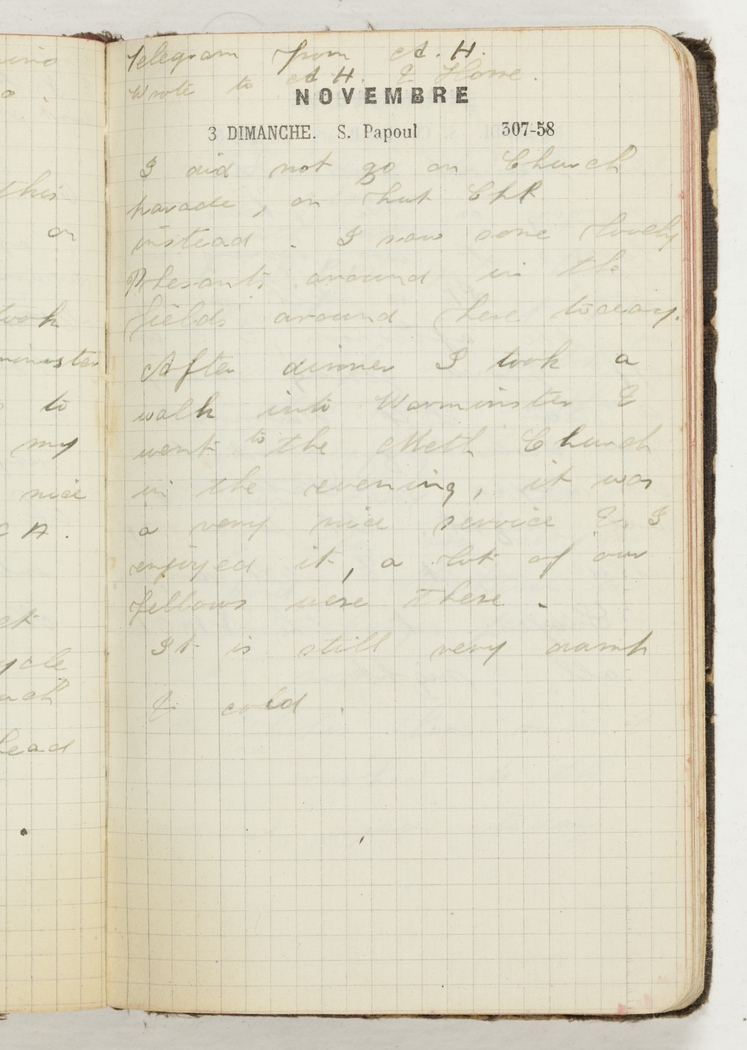 Telegram from A. H.
Wrote to A H. & Home.
NOVEMBRE
3 DIMANCHE. S. Papoul 307-58
I did not go on Church
parade, on hut
instead. I saw some lovely
Phesants around in the
fields around here today.
After dinner I took a
walk into Warminster &
went to the Meth Church
in the evening, it was
a very nice service & I
enjoyed it, a lot of our
fellows were there.
It is still very damp
& cold.
this
on
took
to
my
nice
lead